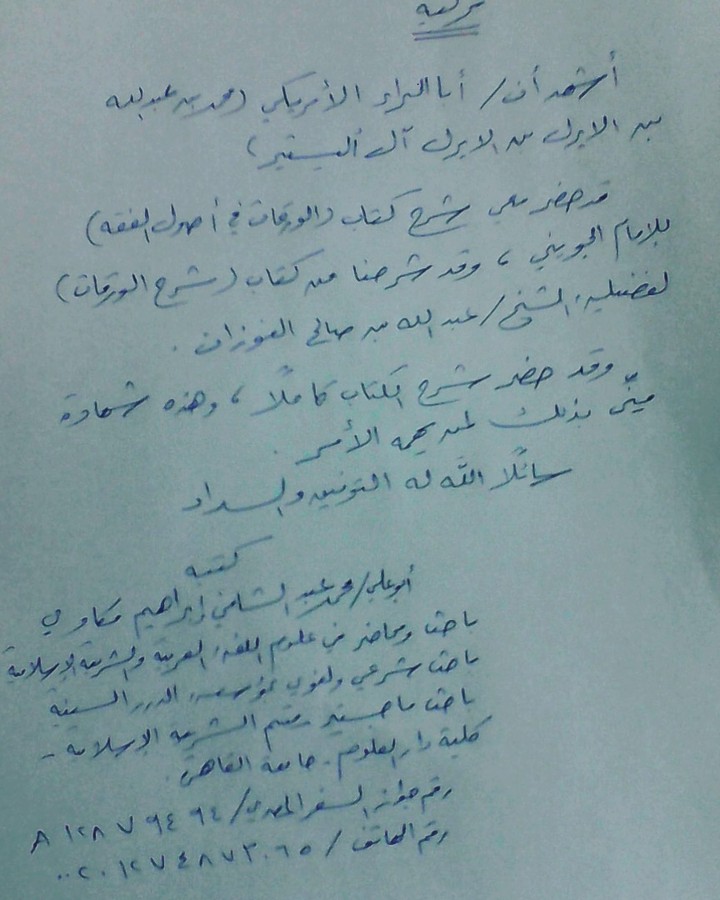 تزكية
أشهد أن / أبا البراء الأمريكي (محمد بن عبد الله
بن الايرل بن الايرل آل أليستير)
قد حضر معي شرح كتاب (الورقات في أصول الفقه)
للإمام الجويني ، وقد شرحنا من كتاب (شرح الورقات)
لفضيلة الشيخ / عبد الله بن صالح الفوزان .
وقد حضر شرح الكتاب كاملًا ، وهذه شهادة
منّي بذلك لمن يهمه الأمر .
سائلًا الله له التوفيق والسداد
كتبه
أبو علي / محمد عبد الشافي إبراهيم مكاوي
باحث ومحاضر في علوم اللغة العربية والشريعة الإسلامية
باحث شرعي ولغوي بمؤسسة الدرر السنية
باحث ماجستير بقسم الشريعة الإسلامية -
كلية دار العلوم - جامعة القاهرة .
رقم جواز السفر المصري / A ١٢٨٧٩٤٩٤
رقم الهاتف / ٠٠٢٠١٢٧٤٨٧٣٠٦٥